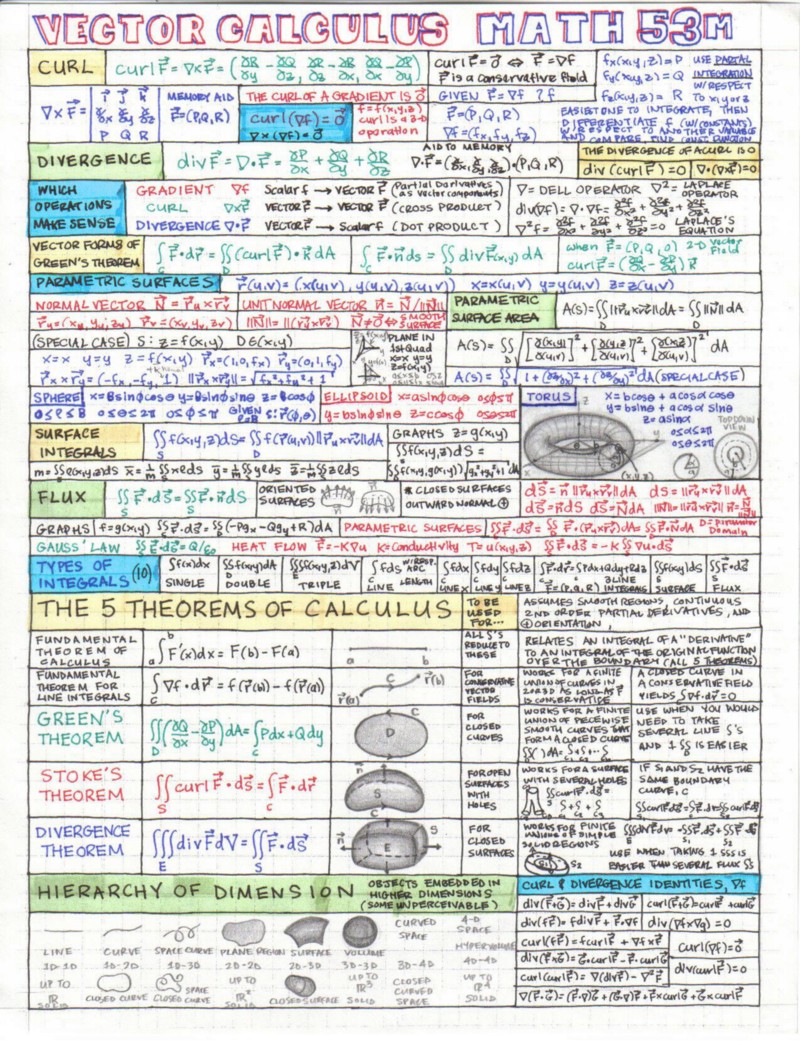 VECTOR CALCULUS MATH 53M
CURL
curl F⃗ = ∇×F⃗ = (∂R/∂y - ∂Q/∂z, ∂P/∂z - ∂R/∂x, ∂Q/∂x - ∂P/∂y)
curl F⃗ = 0⃗ ⇔ F⃗ = ∇f
F⃗ is a conservative field
fx(x,y,z) = P USE PARTIAL
fy(x,y,z) = Q INTEGRATION
fz(x,y,z) = R W/RESPECT TO x, y or z
∇×F⃗ = | i⃗ j⃗ k⃗ |
| ∂/∂x ∂/∂y ∂/∂z |
| P Q R |
MEMORY AID
F⃗ = (P,Q,R)
THE CURL OF A GRADIENT IS 0⃗
curl(∇f) = 0⃗
∇×(∇f) = 0⃗
f = f(x,y,z)
curl is a 3-D
operation
GIVEN F⃗ = ∇f ?f
F⃗ = (P,Q,R)
∇f = (fx, fy, fz)
EASIEST ONE TO INTEGRATE, THEN
DIFFERENTIATE f (W/CONSTANTS)
W/RESPECT TO ANOTHER VARIABLE
AND COMPARE, FIND CONST. FUNCTION
DIVERGENCE
div F⃗ = ∇·F⃗ = ∂P/∂x + ∂Q/∂y + ∂R/∂z
AID TO MEMORY
∇·F⃗ = (∂/∂x, ∂/∂y, ∂/∂z)·(P,Q,R)
THE DIVERGENCE OF A CURL IS 0
div(curl F⃗) = 0 ∇·(∇×F⃗) = 0
WHICH
OPERATIONS
MAKE SENSE
GRADIENT ∇f Scalar f → VECTOR F⃗ (Partial Derivatives as vector components)
CURL ∇×F⃗ VECTOR F⃗ → VECTOR F⃗ (CROSS PRODUCT)
DIVERGENCE ∇·F⃗ VECTOR F⃗ → Scalar f (DOT PRODUCT)
∇ = DELL OPERATOR ∇² = LAPLACE OPERATOR
div(∇f) = ∇·∇f = ∂²f/∂x² + ∂²f/∂y² + ∂²f/∂z²
∇²f = ∂²f/∂x² + ∂²f/∂y² + ∂²f/∂z² = 0 LAPLACE'S EQUATION
VECTOR FORMS OF
GREEN'S THEOREM
∫C F⃗·dr⃗ = ∬D (curl F⃗)·k⃗ dA
∫C F⃗·n⃗ ds = ∬D div F⃗(x,y) dA
when F⃗ = (P,Q,0) 2-D Vector Field
curl F⃗ = (∂Q/∂x - ∂P/∂y) k⃗
PARAMETRIC SURFACES
r⃗(u,v) = (x(u,v), y(u,v), z(u,v)) x=x(u,v) y=y(u,v) z=z(u,v)
NORMAL VECTOR N⃗ = r⃗u × r⃗v
r⃗u = (xu, yu, zu) r⃗v = (xv, yv, zv)
UNIT NORMAL VECTOR n⃗ = N⃗/||N⃗||
||N⃗|| = ||r⃗u × r⃗v|| N⃗ ≠ 0⃗ ⇔ SMOOTH SURFACE
PARAMETRIC
SURFACE AREA
A(S) = ∬D ||r⃗u × r⃗v|| dA = ∬D ||N⃗|| dA
(SPECIAL CASE) S: z = f(x,y) D∈(x,y)
x=x y=y z=f(x,y) r⃗x=(1,0,fx) r⃗y=(0,1,fy)
r⃗x × r⃗y = (-fx, -fy, 1) ||r⃗x × r⃗y|| = √(fx² + fy² + 1)
PLANE IN
1st Quad
x=x y=y
z=f(x,y)
A(S) = ∬D √([∂(x,y)/∂(u,v)]² + [∂(y,z)/∂(u,v)]² + [∂(x,z)/∂(u,v)]²) dA
A(S) = ∬D √(1 + (∂z/∂x)² + (∂z/∂y)²) dA (SPECIAL CASE)
SPHERE x=ρsinφcosθ y=ρsinφsinθ z=ρcosφ
0≤θ≤2π 0≤φ≤π GIVEN ρ S: r⃗(φ,θ)
ELLIPSOID x=asinφcosθ 0≤φ≤π
y=bsinφsinθ z=ccosφ 0≤θ≤2π
TORUS
x = bcosθ + acosα cosθ
y = bsinθ + acosα sinθ
z = asinα
0≤α≤2π
0≤θ≤2π
TOP DOWN
VIEW
(x,y,z)
SURFACE
INTEGRALS
∬S f(x,y,z) dS = ∬D f(r⃗(u,v)) ||r⃗u × r⃗v|| dA
GRAPHS z = g(x,y)
∬S f(x,y,z) dS =
∬D f(x,y,g(x,y)) √(gx² + gy² + 1) dA
m = ∬S ρ(x,y,z) dS x̄ = 1/m ∬S xρ dS ȳ = 1/m ∬S yρ dS z̄ = 1/m ∬S zρ dS
FLUX
∬S F⃗·dS⃗ = ∬S F⃗·n⃗ dS
ORIENTED
SURFACES
* CLOSED SURFACES
OUTWARD NORMAL ⊕
dS⃗ = n⃗ ||r⃗u × r⃗v|| dA dS = ||r⃗u × r⃗v|| dA
dS⃗ = n⃗ dS dS⃗ = N⃗ dA
GRAPHS f = g(x,y) ∬S F⃗·dS⃗ = ∬D (-Pgx - Qgy + R) dA
PARAMETRIC SURFACES ∬S F⃗·dS⃗ = ∬D F⃗·(r⃗u × r⃗v) dA = ∬D F⃗·N⃗ dA D = parameter Domain
GAUSS' LAW ∬S E⃗·dS⃗ = Q/ε₀ HEAT FLOW F⃗ = -K∇u K = Conductivity T = u(x,y,z) ∬S F⃗·dS⃗ = -K ∬S ∇u·dS⃗
TYPES OF
INTEGRALS (10)
∫f(x)dx SINGLE
∬f(x,y)dA DOUBLE
∭f(x,y,z)dV TRIPLE
∫C f ds W/RESP. ARC LENGTH LINE
∫C f dx LINE X
∫C f dy LINE Y
∫C f dz LINE Z
∫C F⃗·dr⃗ = ∫ Pdx + Qdy + Rdz
F⃗ = (P,Q,R) 3 LINE INTEGRALS
∬S f(x,y,z) dS SURFACE
∬S F⃗·dS⃗ FLUX
THE 5 THEOREMS OF CALCULUS
TO BE
USED
FOR...
ASSUMES SMOOTH REGIONS, CONTINUOUS
2ND ORDER PARTIAL DERIVATIVES, AND
⊕ ORIENTATION,
FUNDAMENTAL
THEOREM OF
CALCULUS
∫ab F'(x)dx = F(b) - F(a)
a b
ALL ∫'S
REDUCE TO
THESE
RELATES AN INTEGRAL OF A "DERIVATIVE"
TO AN INTEGRAL OF THE ORIGINAL FUNCTION
OVER THE BOUNDARY (ALL 5 THEOREMS)
FUNDAMENTAL
THEOREM FOR
LINE INTEGRALS
∫C ∇f·dr⃗ = f(r⃗(b)) - f(r⃗(a))
r⃗(a) C r⃗(b)
FOR
CONSERVATIVE
VECTOR
FIELDS
WORKS FOR A FINITE
UNION OF CURVES IN
2D OR 3D AS LONG AS F⃗
IS CONSERVATIVE
A CLOSED CURVE IN
A CONSERVATIVE FIELD
YIELDS ∫∇f·dr⃗ = 0
GREEN'S
THEOREM
∬D (∂Q/∂x - ∂P/∂y) dA = ∫C Pdx + Qdy
C
D
FOR
CLOSED
CURVES
WORKS FOR A FINITE
UNION OF PIECEWISE
SMOOTH CURVES THAT
FORM A CLOSED CURVE
USE WHEN YOU WOULD
NEED TO TAKE
SEVERAL LINE ∫'S
AND 1 ∬ IS EASIER
STOKE'S
THEOREM
∬S curl F⃗·dS⃗ = ∫C F⃗·dr⃗
n⃗ S C
FOR OPEN
SURFACES
WITH
HOLES
WORKS FOR A SURFACE
WITH SEVERAL HOLES
∬curl F⃗·dS⃗ =
∫ + ∫ + ∫
IF S₁ AND S₂ HAVE THE
SAME BOUNDARY
CURVE, C
∬curl F⃗·dS⃗ = ∫F⃗·dr⃗ = ∬curl F⃗·dS⃗
DIVERGENCE
THEOREM
∭E div F⃗ dV = ∬S F⃗·dS⃗
n⃗ E S
FOR
CLOSED
SURFACES
WORKS FOR FINITE
UNIONS OF SIMPLE
SOLID REGIONS
∭div F⃗ dV = ∬F⃗·dS⃗ + ∬F⃗·dS⃗
USE WHEN TAKING 1 ∭ IS
EASIER THAN SEVERAL FLUX ∬
HIERARCHY OF DIMENSION
OBJECTS EMBEDDED IN
HIGHER DIMENSIONS
(SOME UNPERCEIVABLE)
LINE CURVE SPACE CURVE PLANE REGION SURFACE VOLUME CURVED SPACE 4-D SPACE HYPERVOLUME
1D-1D 1D-2D 1D-3D 2D-2D 2D-3D 3D-3D 3D-4D 4D-4D
UP TO ℝ SOLID
CLOSED CURVE
SPACE CLOSED CURVE
UP TO ℝ² SOLID
CLOSED SURFACE
UP TO ℝ³ SOLID
CLOSED CURVED SPACE
UP TO ℝ⁴ SOLID
CURL & DIVERGENCE IDENTITIES, ∇f
div(F⃗+G⃗) = div F⃗ + div G⃗ curl(F⃗+G⃗) = curl F⃗ + curl G⃗
div(fF⃗) = f div F⃗ + F⃗·∇f div(∇f×∇g) = 0
curl(fF⃗) = f curl F⃗ + ∇f×F⃗ curl(∇f) = 0⃗
div(F⃗×G⃗) = G⃗·curl F⃗ - F⃗·curl G⃗ div(curl F⃗) = 0
curl(curl F⃗) = ∇(div F⃗) - ∇²F⃗
∇(F⃗·G⃗) = (F⃗·∇)G⃗ + (G⃗·∇)F⃗ + F⃗×curl G⃗ + G⃗×curl F⃗